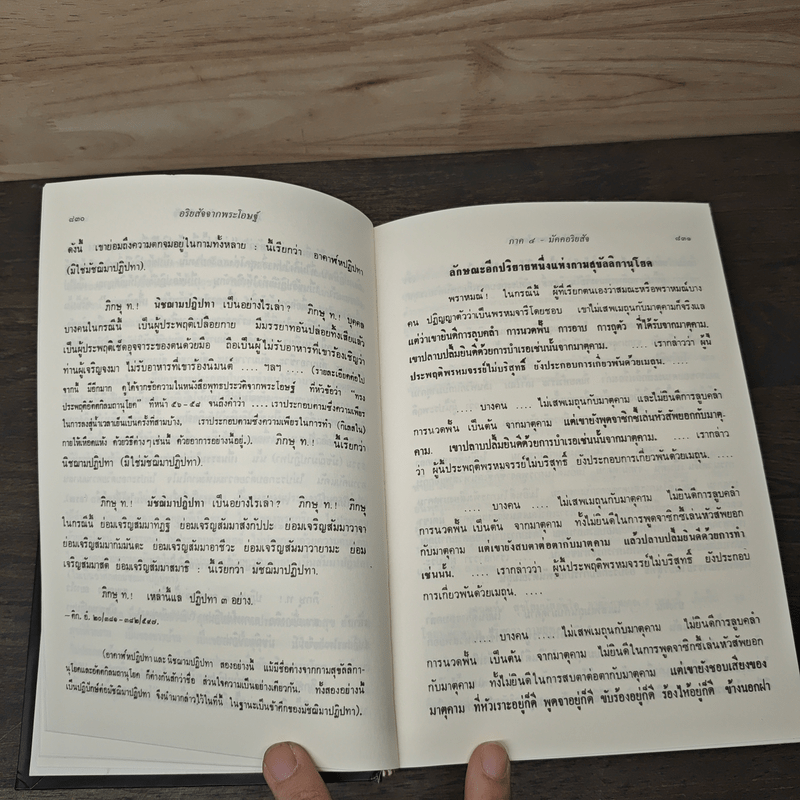 ๘๓๐ อริยสัจจากพระโอษฐ์
ดังนี้ เขาย่อมถึงความตกจมอยู่ในกามทั้งหลาย : นี้เรียกว่า อาคาฬ๎หปฏิปทา
(มิใช่มัชฌิมาปฏิปทา).
ภิกษุ ท.! นิชฌามปฏิปทา เป็นอย่างไรเล่า? ภิกษุ ท.! บุคคล
บางคนในกรณีนี้ เป็นผู้ประพฤติเปลือยกาย มีมรรยาทอันปล่อยทิ้งเสียแล้ว
เป็นผู้ประพฤติเช็ดอุจจาระของตนด้วยมือ ถือเป็นผู้ไม่รับอาหารที่เขาร้องเชิญว่า
ท่านผู้เจริญจงมา ไม่รับอาหารที่เขาร้องนิมนต์ .... ฯลฯ .... (รายละเอียดต่อไป
จากนี้ มีอีกมาก ดูได้จากข้อความในหนังสือพุทธประวัติจากพระโอษฐ์ ที่หัวข้อว่า “ทรง
ประพฤติอัตตกิลมถานุโยค” ที่หน้า ๕๖ – ๕๘ จนถึงคำว่า ....เราประกอบตามซึ่งความเพียร
ในการลงสู่น้ำเวลาเย็นเป็นครั้งที่สามบ้าง, เราประกอบตามซึ่งความเพียรในการทำ (กิเลสใน)
กายให้เหือดแห้ง ด้วยวิธีต่างๆ เช่นนี้ ด้วยอาการอย่างนี้อยู่.). ภิกษุ ท.! นี้เรียกว่า
นิชฌามปฏิปทา (มิใช่มัชฌิมาปฏิปทา).
ภิกษุ ท.! มัชฌิมาปฏิปทา เป็นอย่างไรเล่า? ภิกษุ ท.! ภิกษุ
ในกรณีนี้ ย่อมเจริญสัมมาทิฏฐิ ย่อมเจริญสัมมาสังกัปปะ ย่อมเจริญสัมมาวาจา
ย่อมเจริญสัมมากัมมันตะ ย่อมเจริญสัมมาอาชีวะ ย่อมเจริญสัมมาวายามะ ย่อม
เจริญสัมมาสติ ย่อมเจริญสัมมาสมาธิ : นี้เรียกว่า มัชฌิมาปฏิปทา.
ภิกษุ ท.! เหล่านี้แล ปฏิปทา ๓ อย่าง.
– ติก. อํ. ๒๐/๓๘๑ – ๓๘๒/๕๙๗.
(อาคาฬ๎หปฏิปทา และ นิชฌามปฏิปทา สองอย่างนี้ แม้มีชื่อต่างจากกามสุขัลลิกา-
นุโยคและอัตตกิลมถานุโยค ก็ต่างกันสักว่าชื่อ ส่วนใจความเป็นอย่างเดียวกัน. ทั้งสองอย่างนี้
เป็นปฏิปักษ์ต่อมัชฌิมาปฏิปทา จึงนำมากล่าวไว้ในที่นี้ ในฐานะเป็นข้าศึกของมัชฌิมาปฏิปทา).
ภาค ๔ – มัคคอริยสัจ ๘๓๑
ลักษณะอีกปริยายหนึ่งแห่งกามสุขัลลิกานุโยค
พราหมณ์! ในกรณีนี้ ผู้ที่เรียกตนเองว่าสมณะหรือพราหมณ์บาง
คน ปฏิญญาตัวว่าเป็นพรหมจารีโดยชอบ เขาไม่เสพเมถุนกับมาตุคามก็จริงแล
แต่ว่าเขายินดีการลูบคลำ การนวดฟั้น การอาบ การถูตัว ที่ได้รับจากมาตุคาม.
เขาปลาบปลื้มยินดีด้วยการบำเรอเช่นนั้นจากมาตุคาม. .... เรากล่าวว่า ผู้นี้
ประพฤติพรหมจรรย์ไม่บริสุทธิ์ ยังประกอบการเกี่ยวพันด้วยเมถุน. ....
.... บางคน .... ไม่เสพเมถุนกับมาตุคาม และไม่ยินดีการลูบคลำ
การนวดฟั้น เป็นต้น จากมาตุคาม แต่เขายังพูดจาซิกซี้เล่นหัวสัพยอกกับมาตุ-
คาม. เขาปลาบปลื้มยินดีด้วยการบำเรอเช่นนั้นจากมาตุคาม. .... เรากล่าว
ว่า ผู้นี้ประพฤติพรหมจรรย์ไม่บริสุทธิ์ ยังประกอบการเกี่ยวพันด้วยเมถุน. ....
.... บางคน .... ไม่เสพเมถุนกับมาตุคาม ไม่ยินดีการลูบคลำ
การนวดฟั้น เป็นต้น จากมาตุคาม ทั้งไม่ยินดีในการพูดจาซิกซี้เล่นหัวสัพยอก
กับมาตุคาม แต่เขายังสบตาต่อตากับมาตุคาม แล้วปลาบปลื้มยินดีด้วยการทำ
เช่นนั้น. .... เรากล่าวว่า ผู้นี้ประพฤติพรหมจรรย์ไม่บริสุทธิ์ ยังประกอบ
การเกี่ยวพันด้วยเมถุน. ....
.... บางคน .... ไม่เสพเมถุนกับมาตุคาม ไม่ยินดีการลูบคลำ
การนวดฟั้น เป็นต้น จากมาตุคาม ไม่ยินดีในการพูดจาซิกซี้เล่นหัวสัพยอก
กับมาตุคาม ทั้งไม่ยินดีในการสบตาต่อตากับมาตุคาม แต่เขายังชอบฟังเสียงของ
มาตุคาม ที่หัวเราะอยู่ก็ดี พูดจาอยู่ก็ดี ขับร้องอยู่ก็ดี ร้องไห้อยู่ก็ดี ข้างนอกฝา